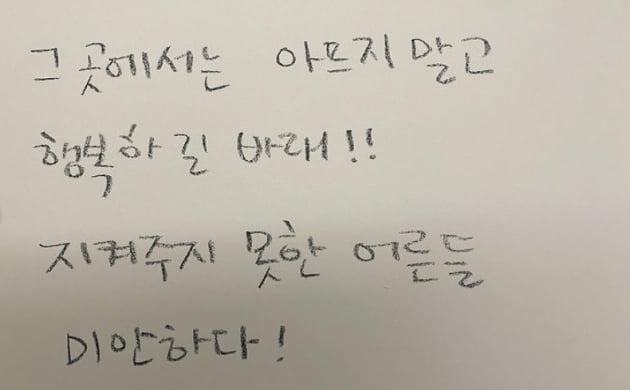 그 곳에서는 아프지말고
행복하길 바래!!
지켜주지 못한 어른들
미안하다!